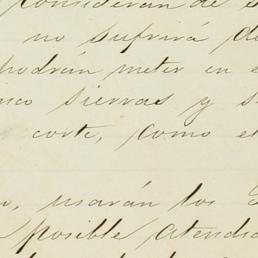 consideran de
no sufrirá
podrán meter en
sierras y
corte, como
usarán los
posible atendi